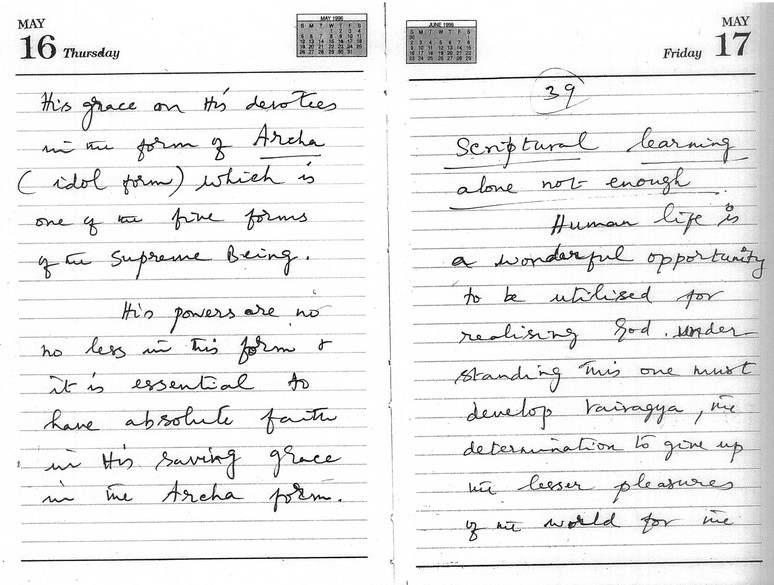 MAY
16 Thursday
MAY 1996
His grace on His devotees
in the form of Archa
( idol form) which is
one of the five forms
of the Supreme Being.
His powers are no
no less in this form &
it is essential to
have absolute faith
in His saving grace
in the Archa form.
JUNE 1996
MAY
Friday 17
39
Scriptural learning
alone not enough.
Human life is
a wonderful opportunity
to be utilised for
realising God. Under-
standing this one must
develop Vairagya, the
determination to give up
the lesser pleasures
of the world for the